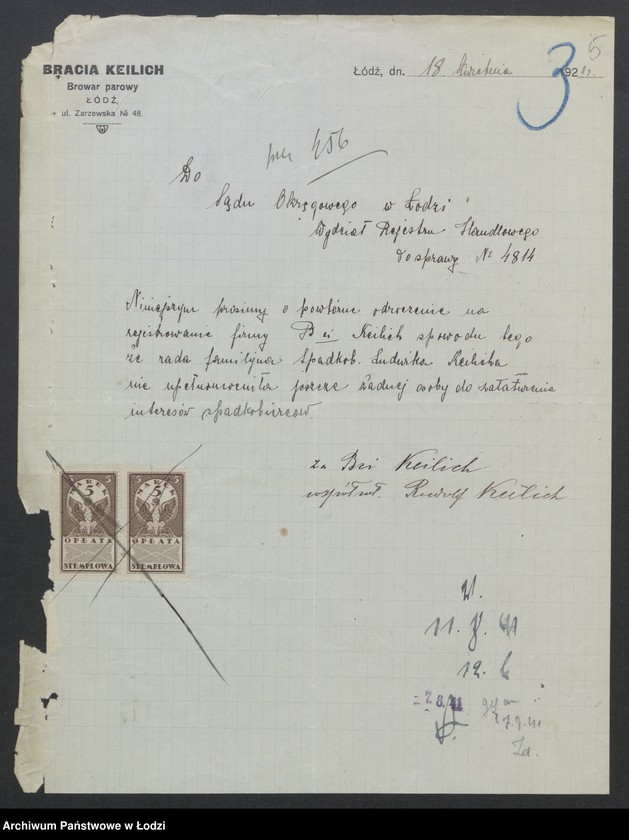 BRACIA KEILICH
Browar parowy
ŁÓDŹ,
ul. Zarzewska № 48.
Łódź, dn. 18 kwietnia 192
3
5
456
Do
Sądu Okręgowego w Łodzi
Wydział Rejestru Handlowego
do sprawy № 4814
Niniejszym prosimy o powtórne odroczenie na
rejestrowanie firmy B-ci Keilich spowodu tego
że rada familijna Spadkob. Ludwika Keilicha
nie upełnomocniła jeszcze żadnej osoby do załatwienia
interesów spadkobierców.
za B-ci Keilich
współwł. Rudolf Keilich
5 MAREK 5
5
OPŁATA
STEMPLOWA
5 MAREK 5
5
OPŁATA
STEMPLOWA
Archiwum Państwowe w Łodzi